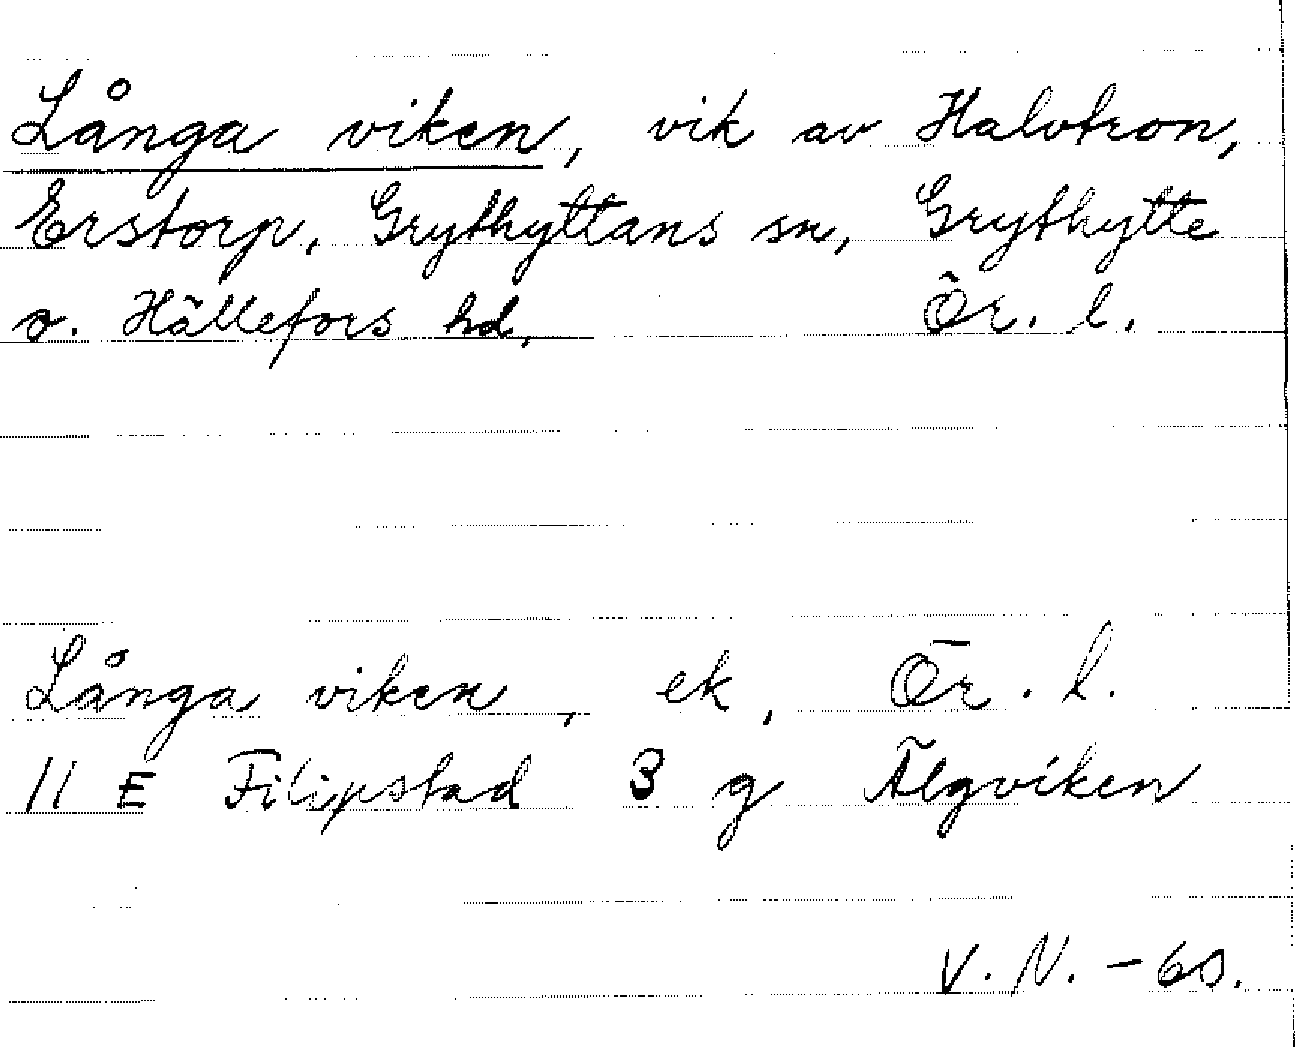 Långa viken, vik av Halvtron,
Erstorp, Grythyttans sn, Grythytte
o. Hällefors hd, Ör. l.
Långa viken, ek, Ör. l.
11 E Filipstad 3 g Älgviken
V. N. - 60.